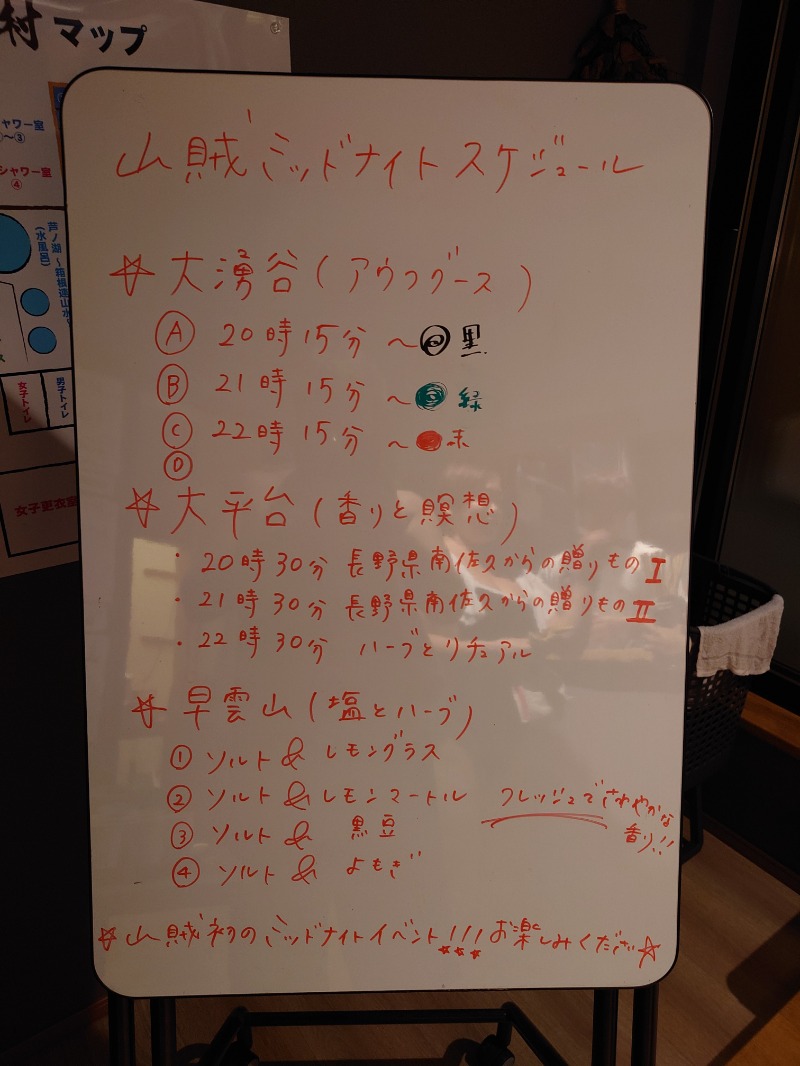 村 マップ
ャワー室
①～③
シャワー室
④
芦ノ湖～箱根連山水
(水風呂)
女子トイレ
男子トイレ
女子更衣室
山賊ミッドナイトスケジュール
☆ 大湧谷(アウフグース)
Ⓐ 20時15分 ～ 黒
Ⓑ 21時15分 ～ 緑
Ⓒ 22時15分 ～ 赤
Ⓓ
☆ 大平台(香りと瞑想)
・20時30分 長野県南佐久からの贈りものⅠ
・21時30分 長野県南佐久からの贈りものⅡ
・22時30分 ハーブとリチュアル
☆ 早雲山(塩とハーブ)
① ソルト & レモングラス
② ソルト & レモンマートル フレッシュでさわやかな
香り!!
③ ソルト & 黒豆
④ ソルト & よもぎ
☆山賊初のミッドナイトイベント!!!お楽しみください☆